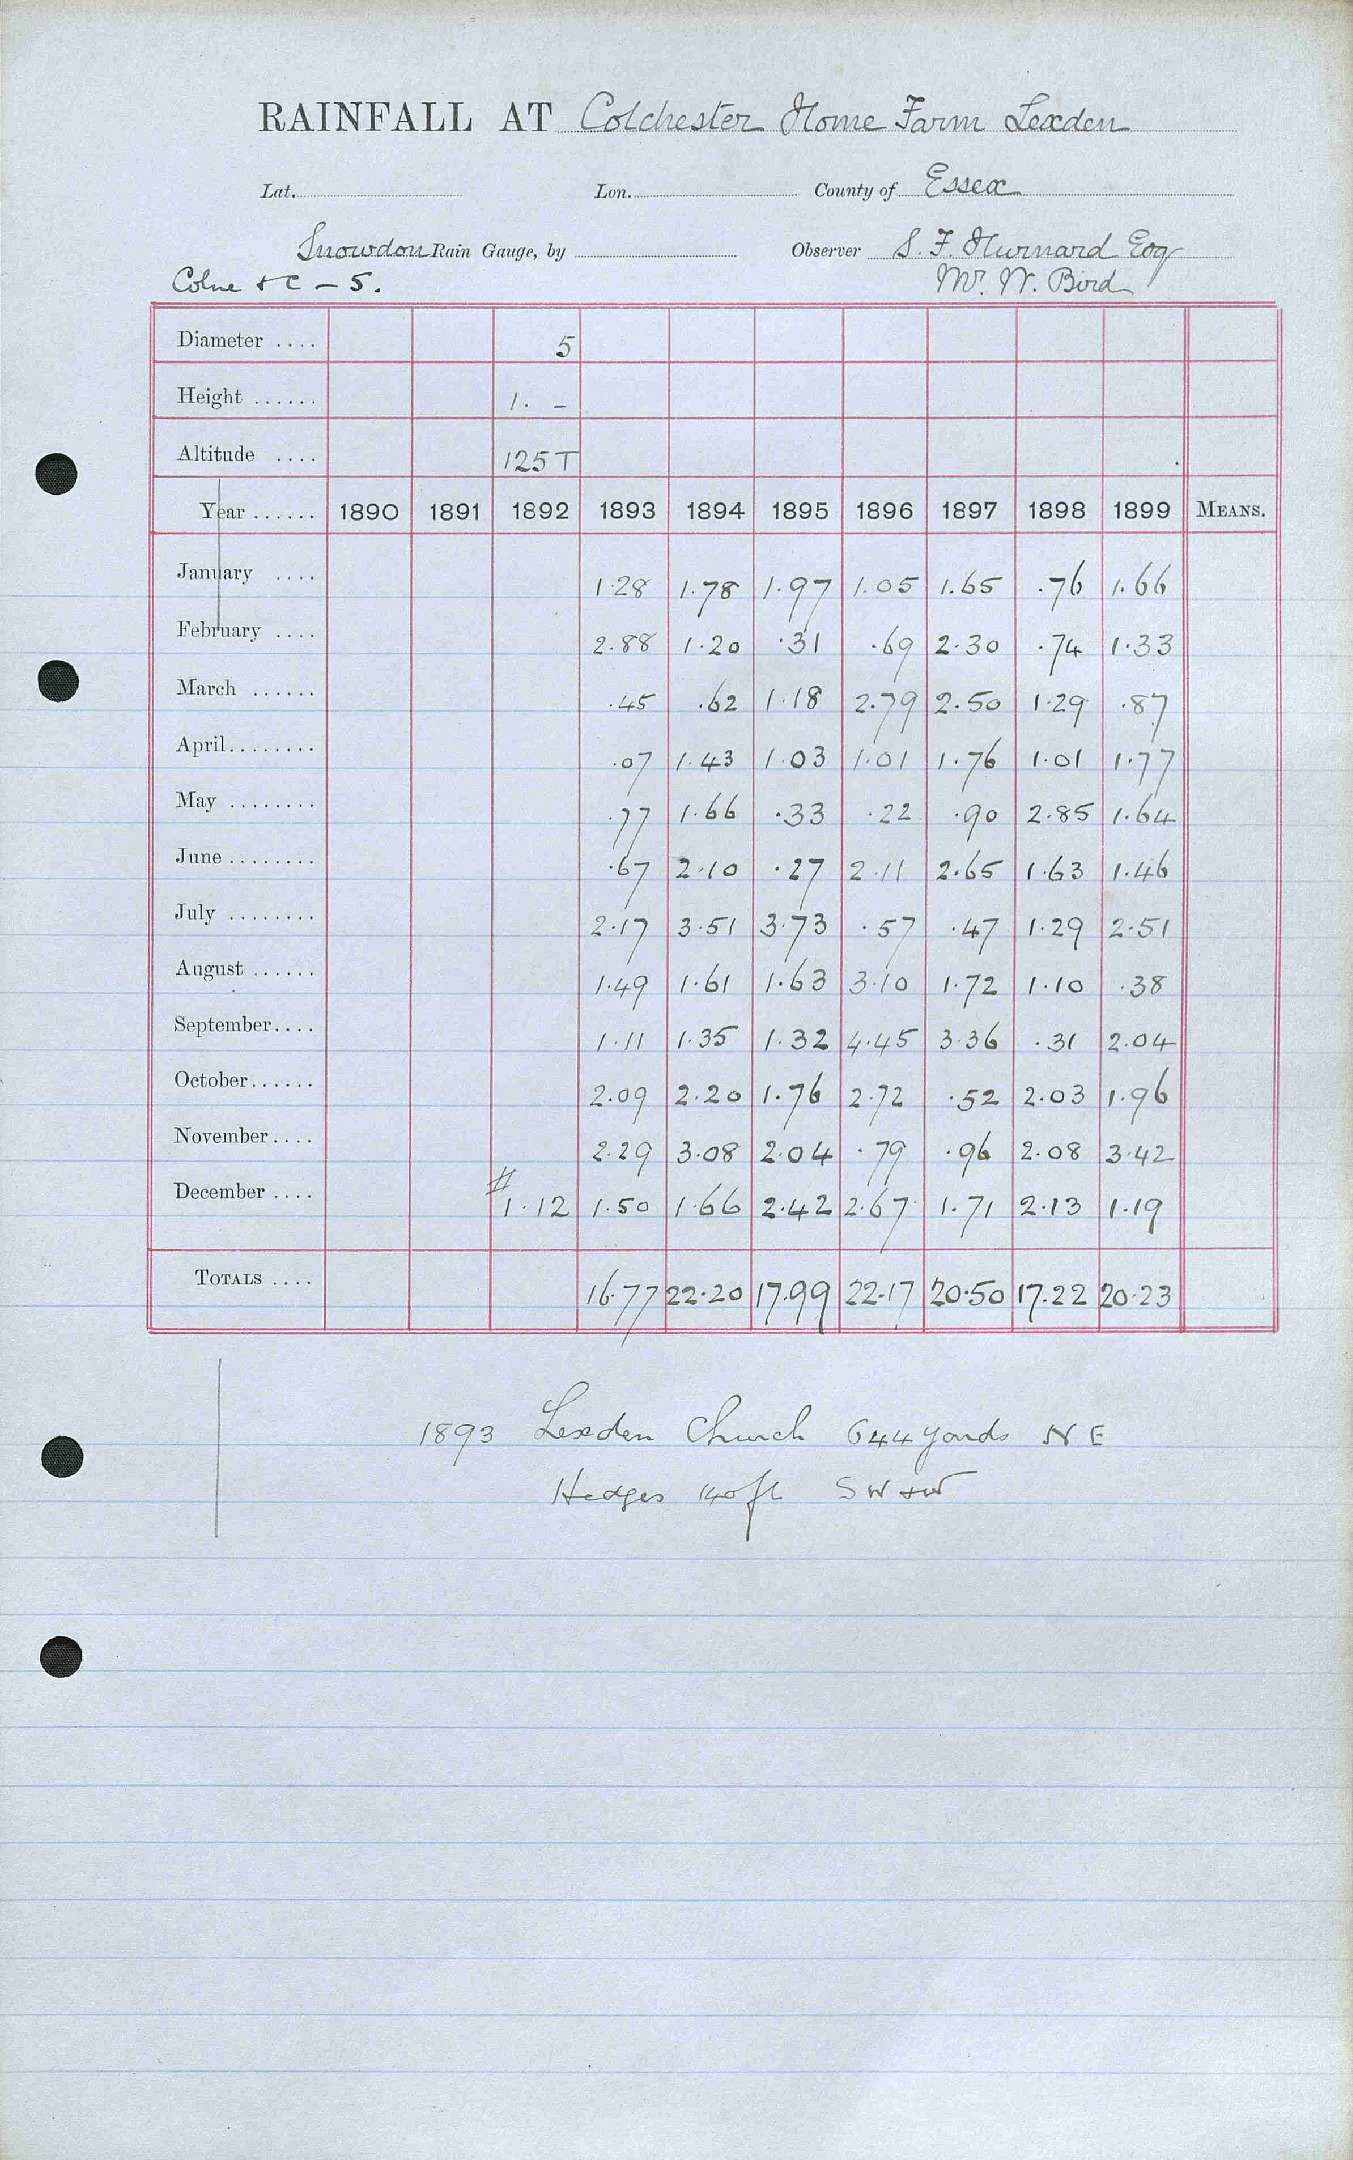 RAINFALL AT Colchester Home Farm Lexden
Lat. Lon. County of Essex
Snowdon Rain Gauge, by Observer S. F. Hurnard Esq
Colne & C – 5. Mr. W. Bird
Diameter .... 5
Height ...... 1. –
Altitude .... 125 T
Year ...... 1890 1891 1892 1893 1894 1895 1896 1897 1898 1899 MEANS.
January .... 1.28 1.78 1.97 1.05 1.65 .76 1.66
February .... 2.88 1.20 .31 .69 2.30 .74 1.33
March ...... .45 .62 1.18 2.79 2.50 1.29 .87
April........ .07 1.43 1.03 1.01 1.76 1.01 1.77
May ........ .77 1.66 .33 .22 .90 2.85 1.64
June ........ .67 2.10 .27 2.11 2.65 1.63 1.46
July ........ 2.17 3.51 3.73 .57 .47 1.29 2.51
August ...... 1.49 1.61 1.63 3.10 1.72 1.10 .38
September.... 1.11 1.35 1.32 4.45 3.36 .31 2.04
October...... 2.09 2.20 1.76 2.72 .52 2.03 1.96
November.... 2.29 3.08 2.04 .79 .96 2.08 3.42
December .... # 1.12 1.50 1.66 2.42 2.67 1.71 2.13 1.19
TOTALS .... 16.77 22.20 17.99 22.17 20.50 17.22 20.23
1893 Lexden Church 644 yards NE
Hedges 140 ft SW & W